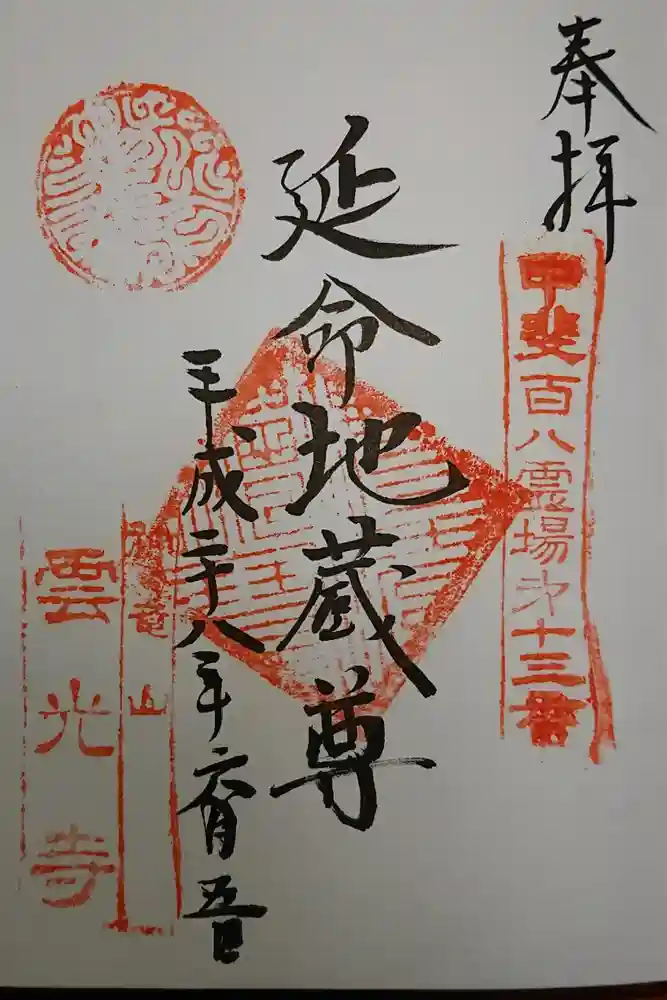 奉拝
甲斐百八霊場第十三番
延命地蔵尊
平成二十八年六月五日
雲光寺